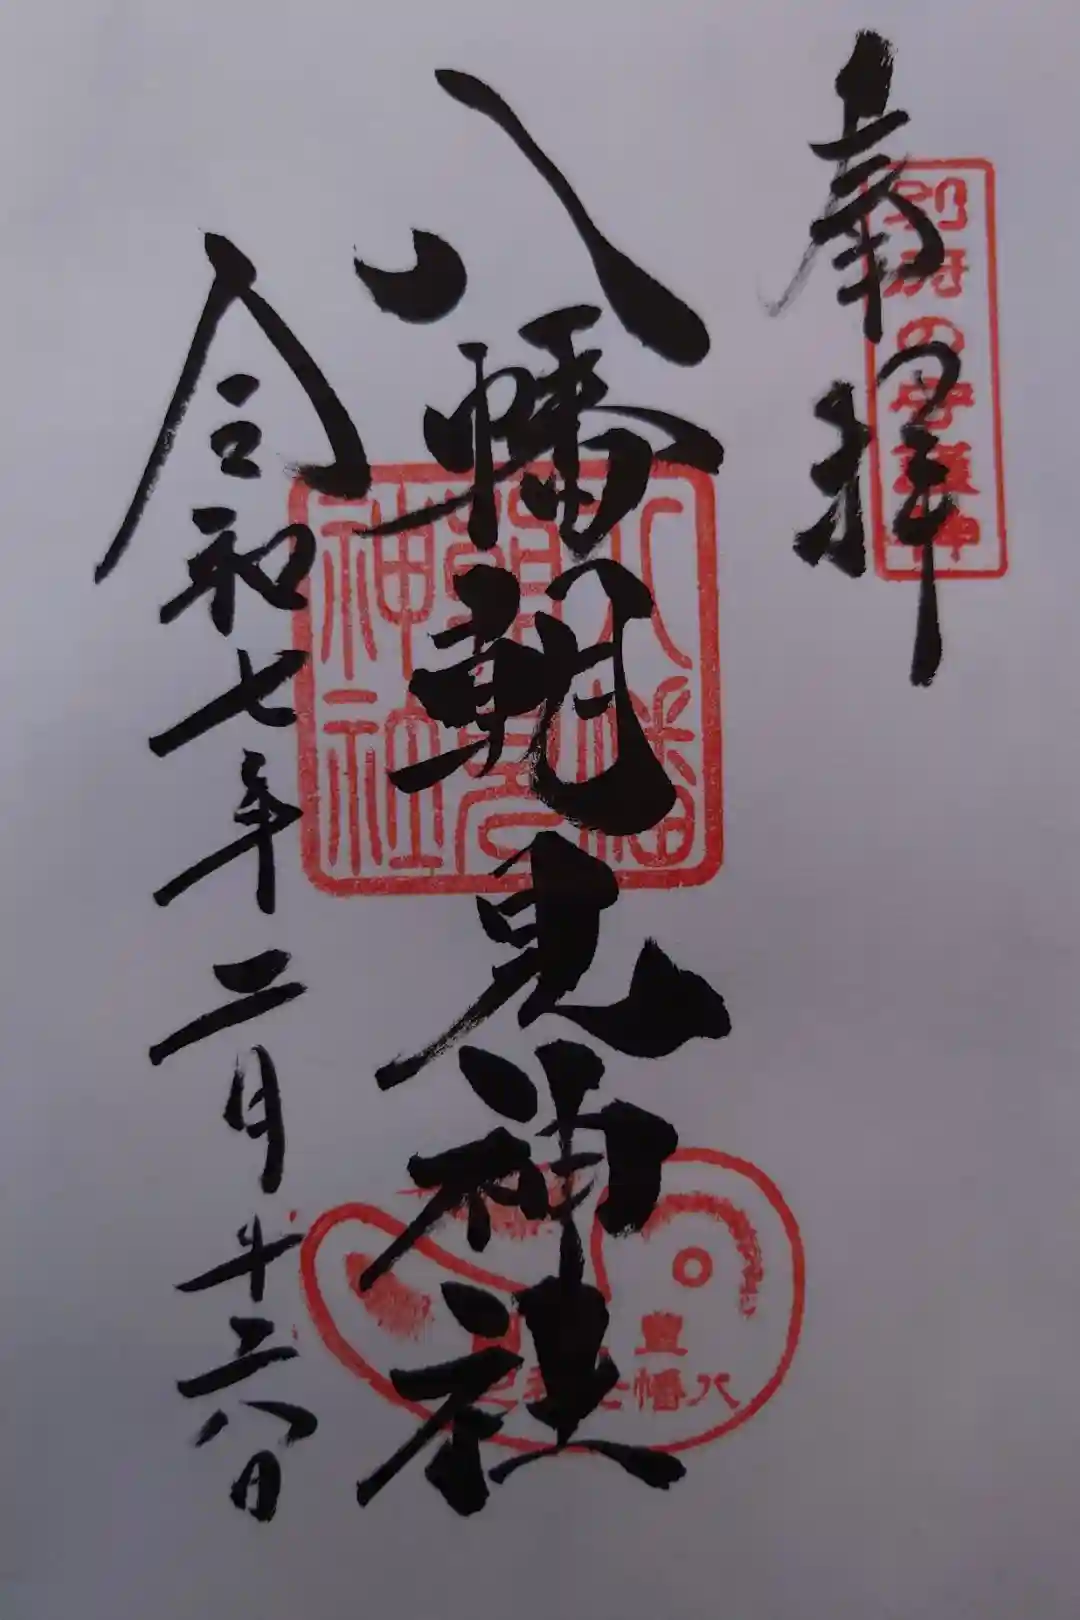 奉拝
別府の守護神
八幡朝見神社
八幡朝見神社
令和七年二月十六日
豊
八幡